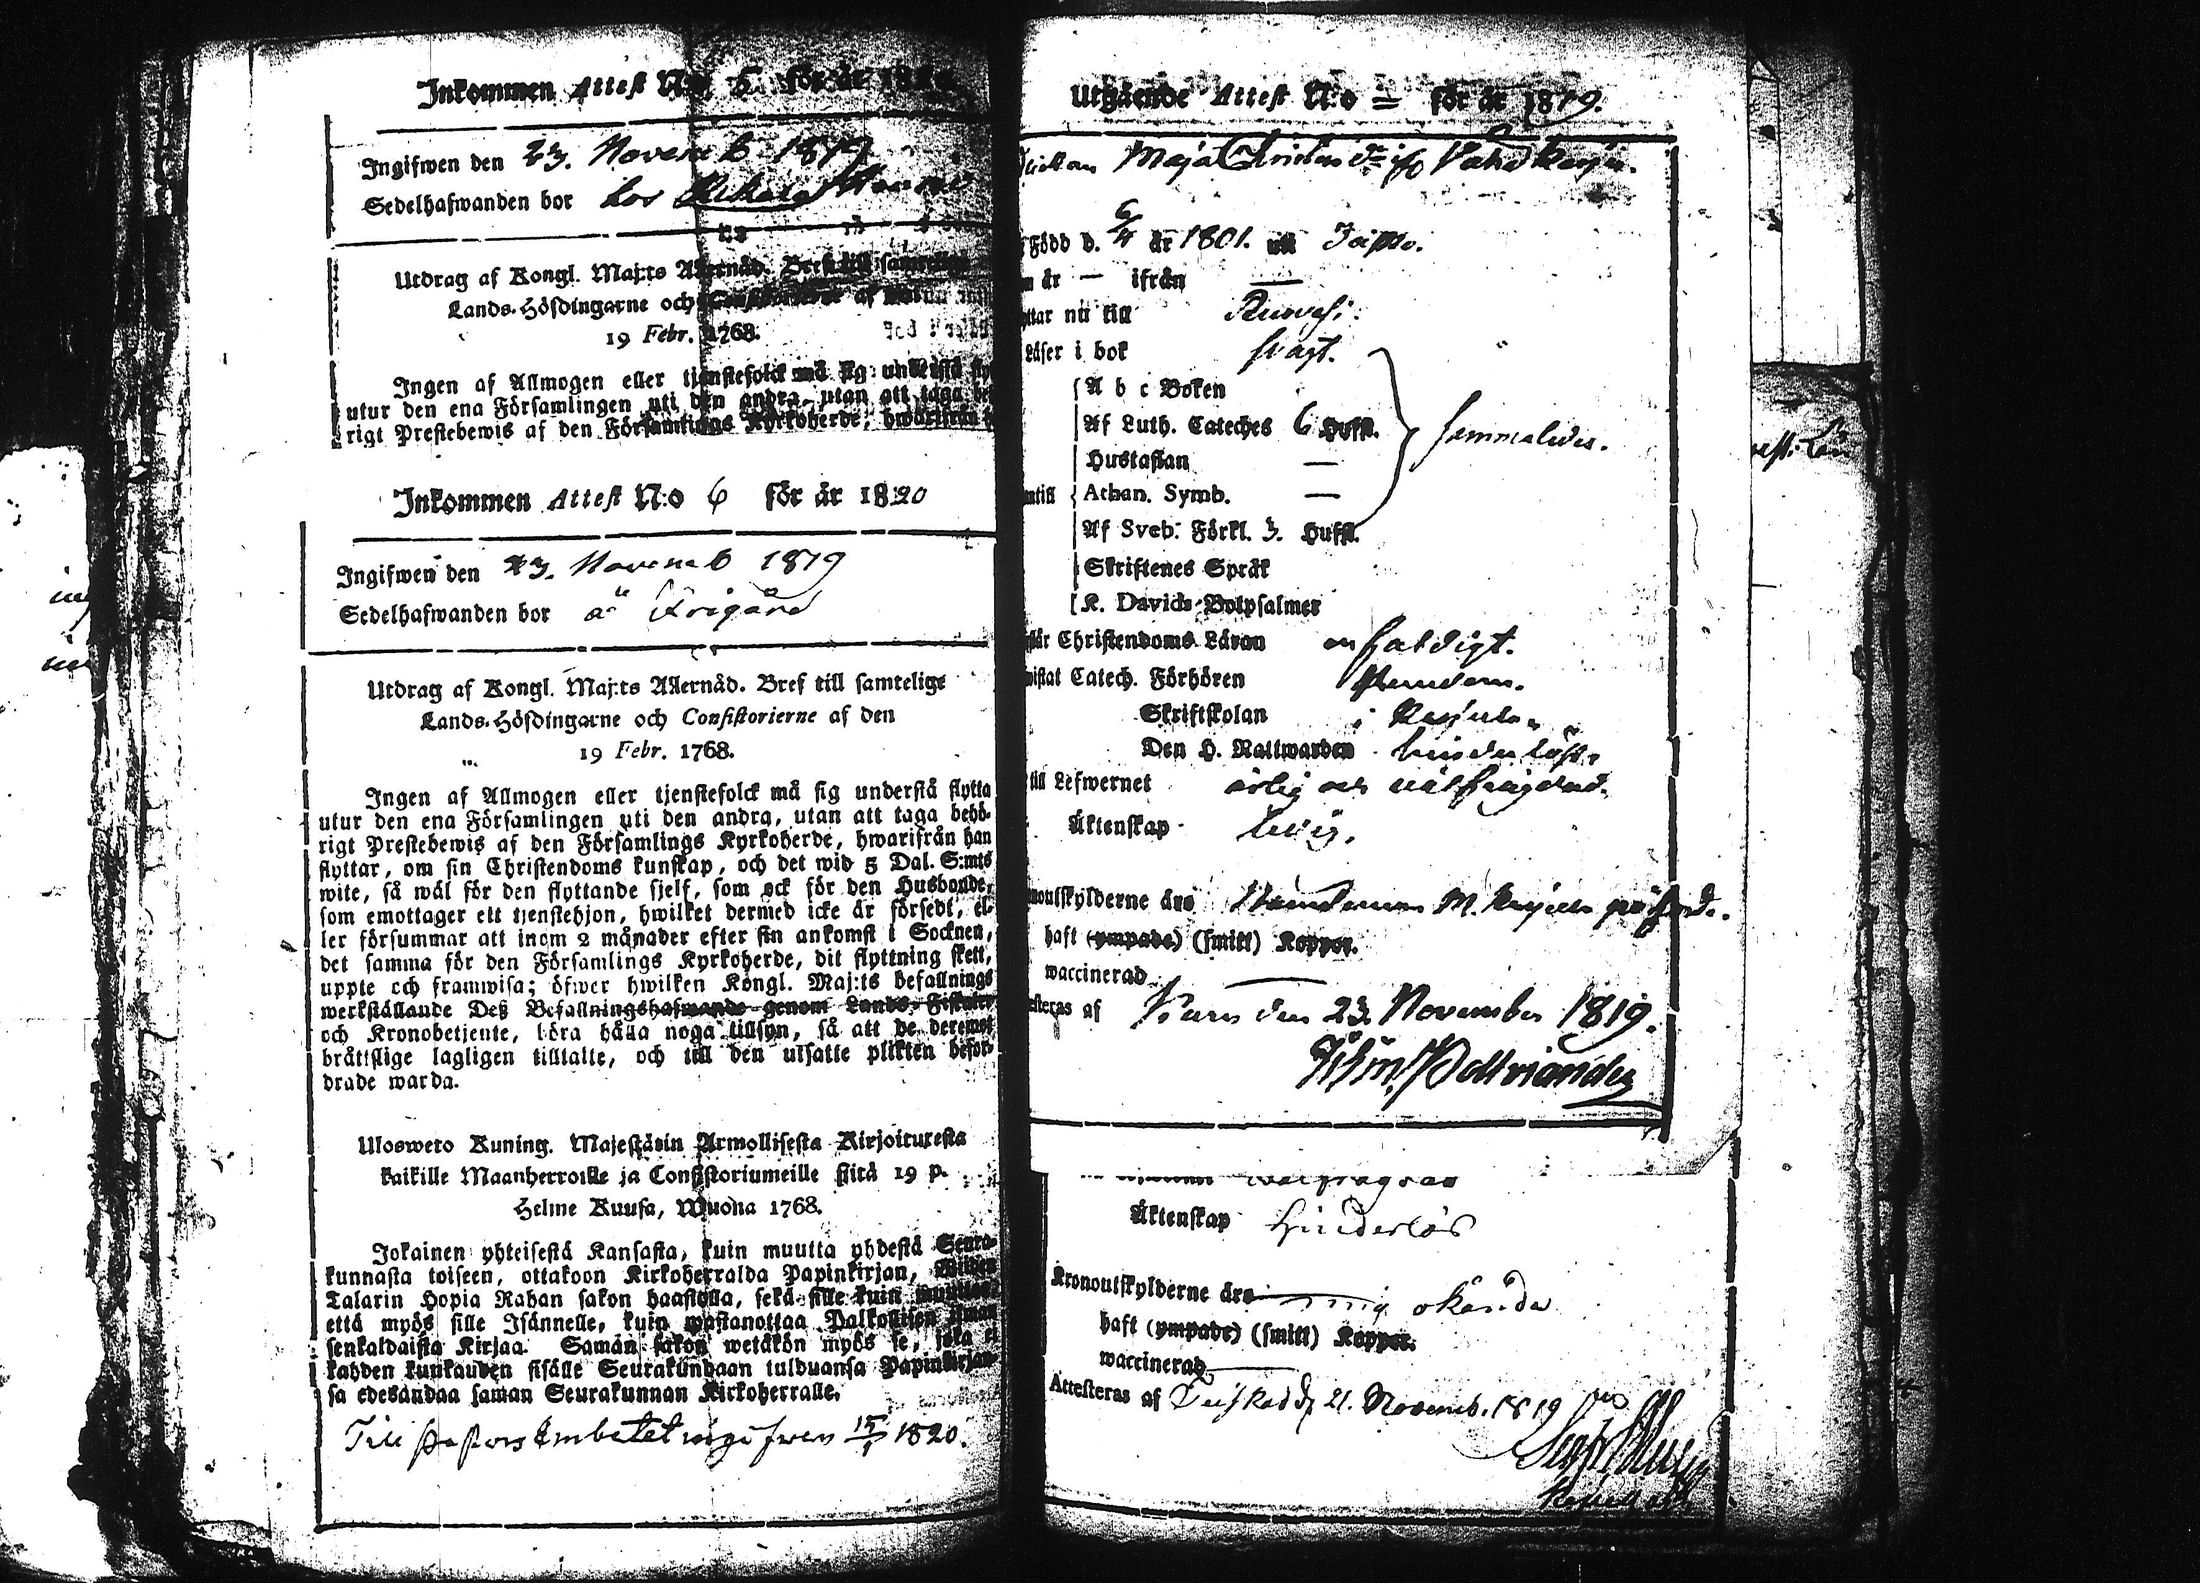 Inkommen Attest N:o 5. för år 18
Ingifwen den 23. Novemb 1819
Sedelhafwanden bor hos
Utdrag af Kongl. Maj:ts Allernåd. Bref till samtelige
Lands-Höfdingarne och Consistorierne af den
19 Febr. 1768.
Ingen af Allmogen eller tjenstefolck må sig understå fly
utur den ena Församlingen uti den andra, utan att taga be
rigt Prestebewis af den Församlings Kyrkoherde, hwarifrån
Inkommen Attest N:o 6 för år 1820
Ingifwen den 23. Novemb 1819
Sedelhafwanden bor å Frigård
Utdrag af Kongl. Maj:ts Allernåd. Bref till samtelige
Lands-Höfdingarne och Consistorierne af den
19 Febr. 1768.
Ingen af Allmogen eller tjenstefolck må sig understå flytta
utur den ena Församlingen uti den andra, utan att taga behö-
rigt Prestebewis af den Församlings Kyrkoherde, hwarifrån han
flyttar, om sin Christendoms kunskap, och det wid 5 Dal. S:mts
wite, så wäl för den flyttande sjelf, som ock för den Husbonde,
som emottager ett tjenstehjon, hwilket dermed icke är försedt, el-
ler försummar att inom 2 månader efter sin ankomst i Socknen,
det samma för den Församlings Kyrkoherde, dit flyttning skett,
uppte och framwisa; öfwer hwilken Kongl. Maj:ts befallnings
werkställande Deß Befallningshafwande genom Lands-Fiskaler
och Kronobetjente, böra hålla noga tillsyn, så att de deremot
bråttslige lagligen tilltalte, och till den utsatte plikten befor-
drade warda.
Ulosweto Kuning. Majestätin Armollisesta Kirjoituxesta
kaikille Maanherroille ja Consistoriumeille siitä 19 p.
Helme Kuusa, Wuona 1768.
Jokainen yhteisestä Kansasta, kuin muutta yhdestä Seura-
kunnasta toiseen, ottakoon Kirkoherralda Papinkirjan, Wiiden
Talarin Hopia Rahan sakon haastolla, sekä sille kuin muuttaa
että myös sille Isännelle, kuin wastanottaa Palkollisen ilman
senkaldaista Kirjaa. Samän sakon wetäkön myös se, joka ei
kahden kuukauden sisälle Seurakundaan tulduansa Papinkirjan-
sa edesandaa saman Seurakunnan Kirkoherralle.
Till Pastors Embetet ingifwen 15/1 1820.
Utgående Attest N:o = för år 1819.
Maja Christina
Född d. 6/4 år 1801. uti
år — ifrån —
ttar nu till Ruovesi.
Läser i bok svagt.
A b c Boken
Af Luth. Cateches 6 Hufst.
Hustaflan —
Athan. Symb. —
Af Sveb. Förkl. 3. Hufst.
sammaledes.
Skriftenes Språk
K. Davids Botpsalmer
Christendoms Läran enfaldigt.
Catech. Förhören
Skriftskolan i
Den H. Nattwarden hinderlöst.
till Lefwernet ärlig och välfrägdad.
Äktenskap ledig.
noutskylderne äro
haft (ympade) (smitt) Koppor.
waccinerad —
esteras af den 23. November 1819.
wälfrägdad
Äktenskap hinderlös
Kronoutskylderne äro mig okända
haft (ympade) (smitt) Koppor.
waccinerad —
Attesteras af Teiskad 21. Novemb. 1819